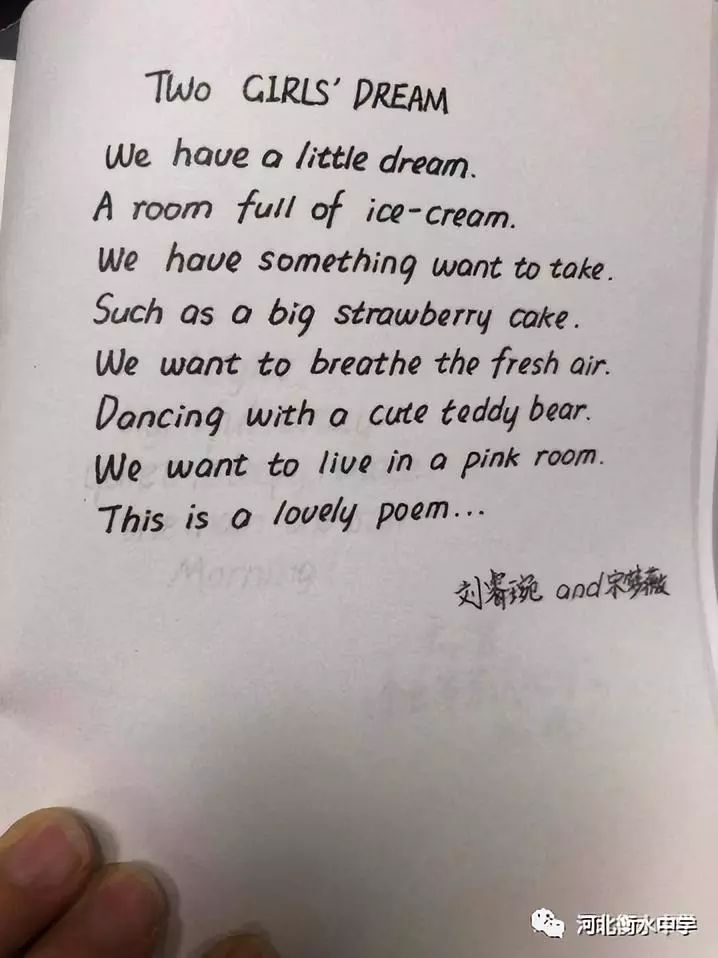 TWO GIRLS' DREAM
We have a little dream.
A room full of ice-cream.
We have something want to take.
Such as a big strawberry cake.
We want to breathe the fresh air.
Dancing with a cute teddy bear.
We want to live in a pink room.
This is a lovely poem...
刘睿琬 and 宋梦薇
Morning
河北衡水中学